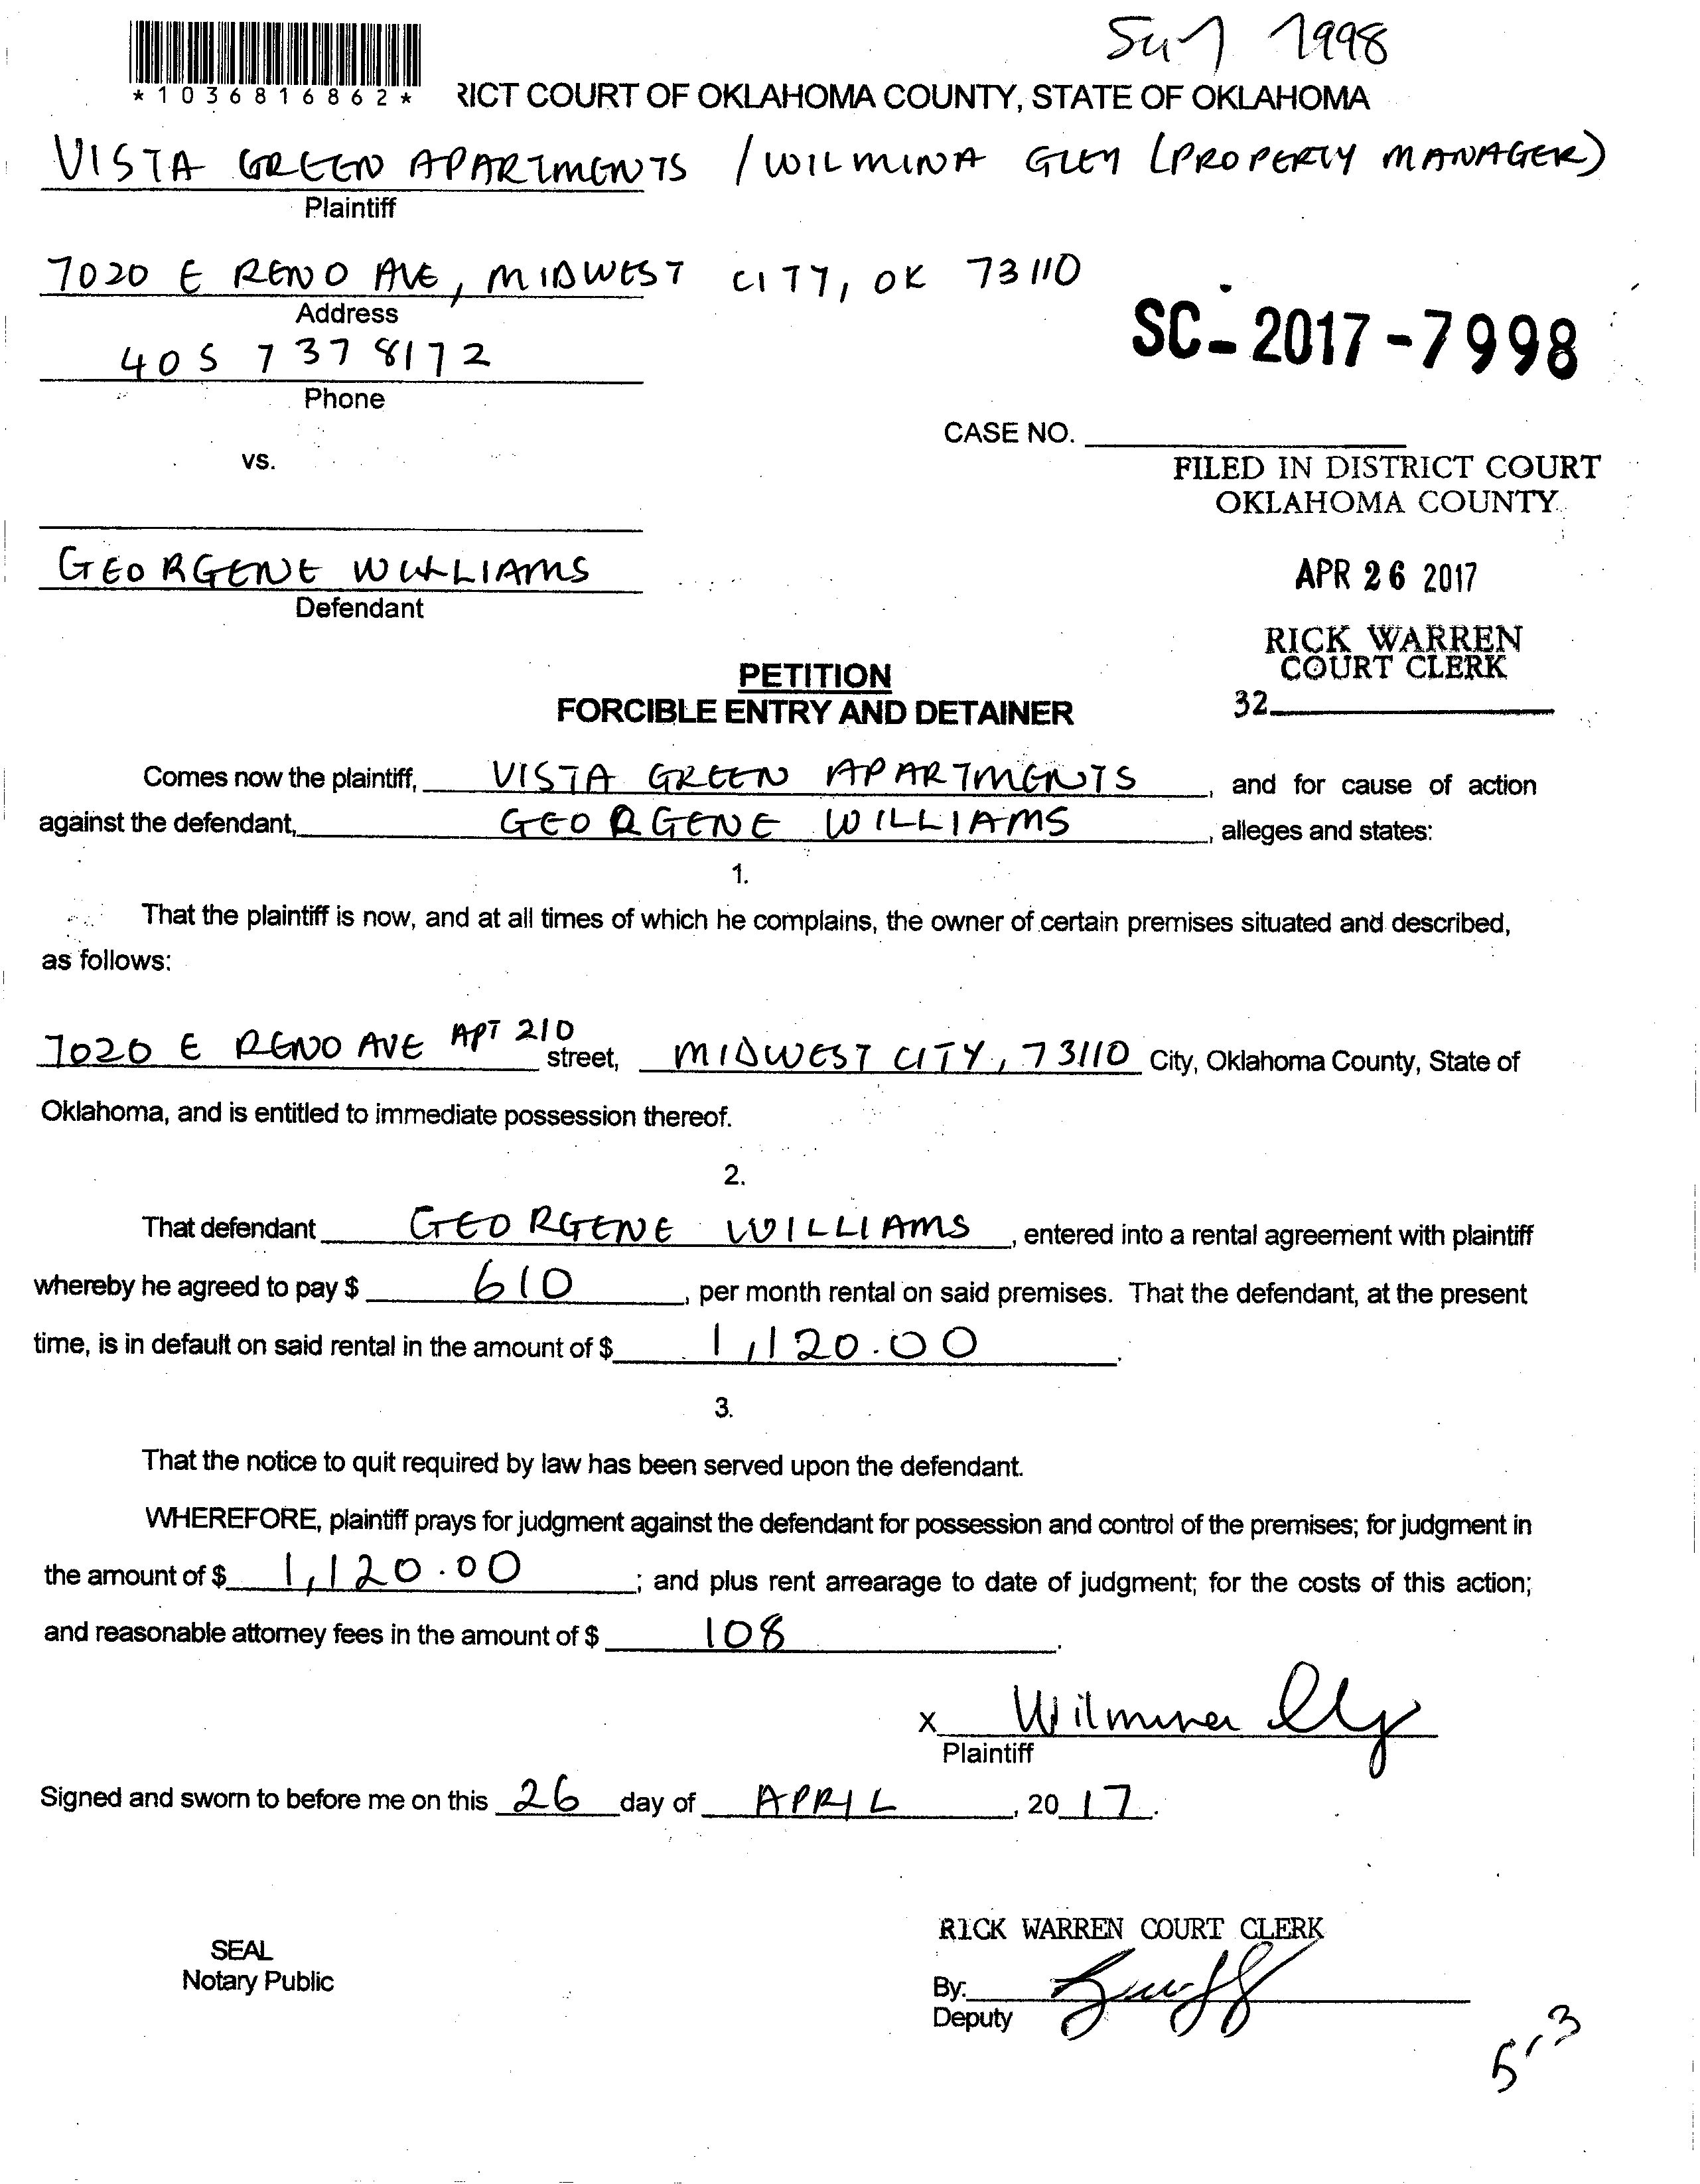 1998
*1036816862*
RICT COURT OF OKLAHOMA COUNTY, STATE OF OKLAHOMA
VISTA GREEN APARTMENTS / WILMINA GLEY (PROPERTY MANAGER)
Plaintiff
7020 E RENO AVE, MIDWEST CITY, OK 73110
Address
SC-2017-7998
405 737 8172
Phone
CASE NO.
vs.
FILED IN DISTRICT COURT
OKLAHOMA COUNTY
GEORGENE WILLIAMS
APR 26 2017
Defendant
RICK WARREN
COURT CLERK
PETITION
32
FORCIBLE ENTRY AND DETAINER
Comes now the plaintiff, VISTA GREEN APARTMENTS, and for cause of action
against the defendant, GEORGENE WILLIAMS, alleges and states:
1.
That the plaintiff is now, and at all times of which he complains, the owner of certain premises situated and described,
as follows:
7020 E RENO AVE APT 210 street, MIDWEST CITY, 73110 City, Oklahoma County, State of
Oklahoma, and is entitled to immediate possession thereof.
2.
That defendant GEORGENE WILLIAMS, entered into a rental agreement with plaintiff
whereby he agreed to pay $ 610, per month rental on said premises. That the defendant, at the present
time, is in default on said rental in the amount of $ 1,120.00.
3.
That the notice to quit required by law has been served upon the defendant.
WHEREFORE, plaintiff prays for judgment against the defendant for possession and control of the premises; for judgment in
the amount of $ 1,120.00; and plus rent arrearage to date of judgment; for the costs of this action;
and reasonable attorney fees in the amount of $ 108.
X Wilmina
Plaintiff
Signed and sworn to before me on this 26 day of APRIL, 20 17.
RICK WARREN COURT CLERK
SEAL
Notary Public
By:
Deputy
5-3